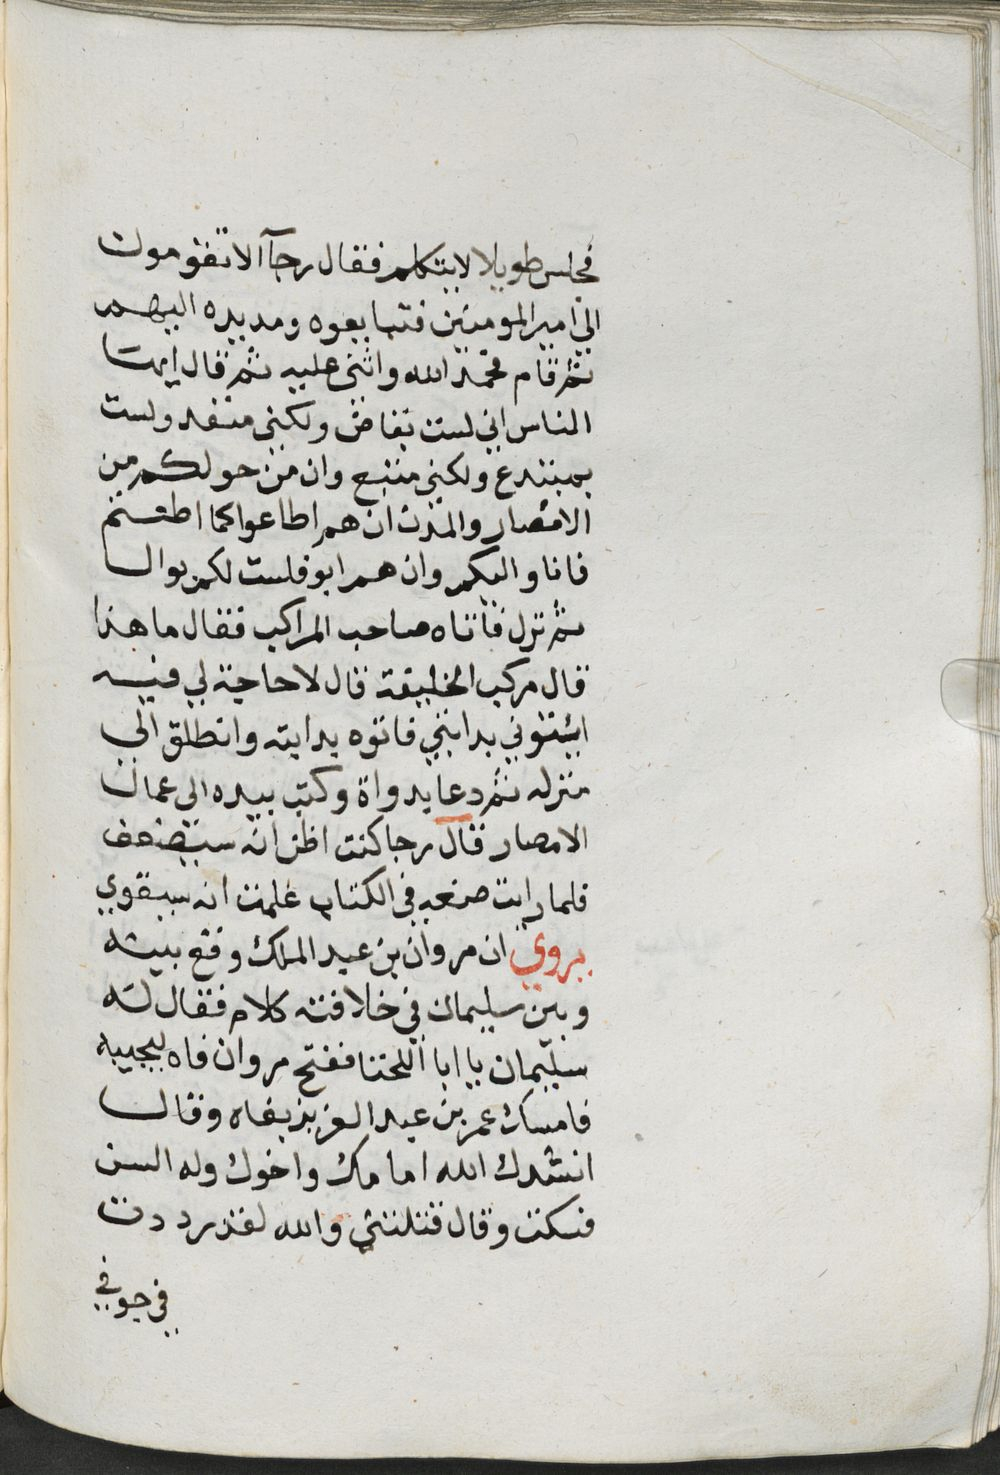 فجلس طويلا لا يتكلم فقال رجآ الا تقومون
الي امير المومنين فتبايعوه ومد يده اليهم
ثم قام فحمد الله واثنى عليه ثم قال ايها
الناس اني لست بقاض ولكني منفد ولست
بمبتدع ولكني متبع وان من حولكم من
الامصار والمدن ان هم اطاعوا كما اطعتم
فانا واليكم وان هم ابو فلست لكم بوال
ثم نزل فاتاه صاحب المراكب فقال ما هذا
قال مركب الخليفة قال لا حاجة لي فيه
ايتوني بدابتي فاتوه بدابته وانطلق الي
منزله ثم دعا بدواة وكتب بيده الى عمال
الامصار قال رجا كنت اظن انه سيضعف
فلما رايت صنعه في الكتاب علمت انه سيقوي
يروي ان مروان بن عبد الملك وقع بينه
وبين سليمان في خلافته كلام فقال له
سليمان يا ابا اللخنا ففتح مروان فاه ليجيبه
فامسك عمر بن عبد العزيز بفاه وقال
انشدك الله امامك واخوك وله السن
فسكت وقال قتلتني والله لقد رددت
في جوفي